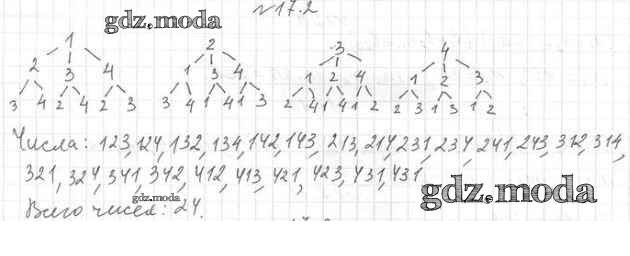 №17.2
gdz.moda
1 2 3 4
2 3 4 1 3 4 1 2 4 1 2 3
3 4 2 4 2 3 3 4 1 4 1 3 2 4 1 4 1 2 2 3 1 3 1 2
Числа: 123, 124, 132, 134, 142, 143, 213, 214, 231, 234, 241, 243, 312, 314,
321, 324, 341, 342, 412, 413, 421, 423, 431, 431.
gdz.moda
gdz.moda
Всего чисел: 24.